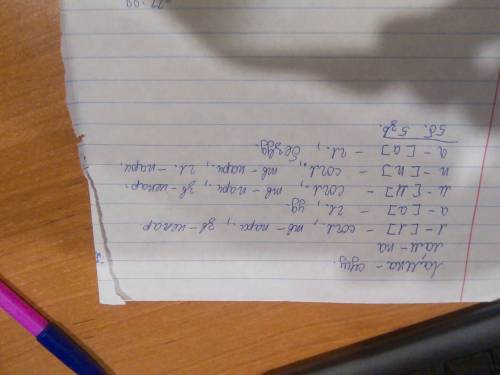 Лампа - сущ.
лам - па
л - [л] - согл., тв - парн., зв - непар
а - [а] - гл., уд.
м - [м] - согл., тв - парн., зв - непар.
п - [п] - согл., тв - парн., гл. - парн.
а - [а] - гл., безуд.
5б. 5зв.